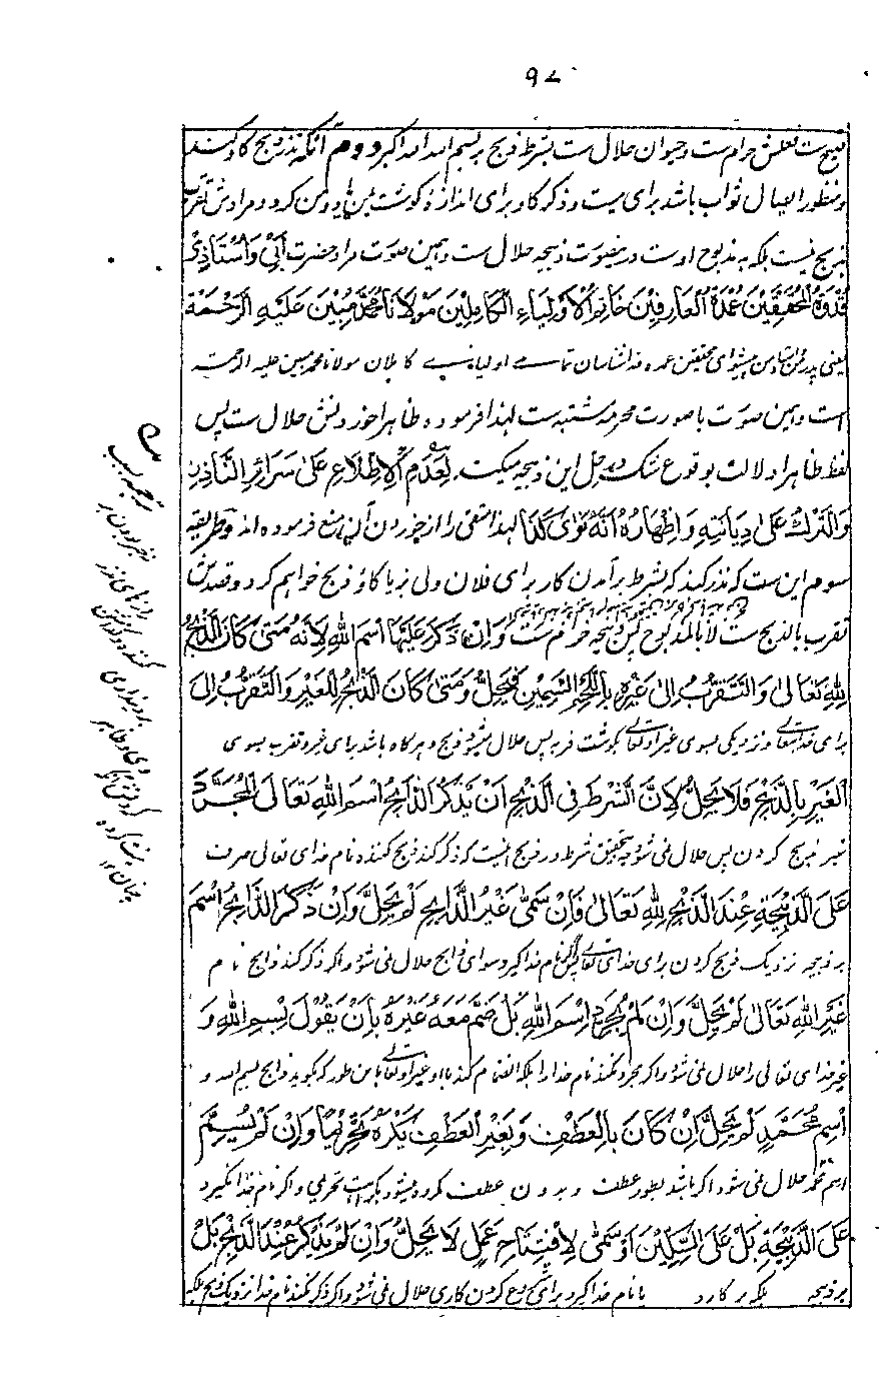 ۹۷
قبیح ست فعلش حرام ست و حیوان حلال ست بشرط ذبح بر بسم الله الله اکبر دوم آنکه نذر ذبح گاو کند
و منظور ایصال ثواب باشد برای میت و ذکر گاو برای اندازهٔ گوشت بمن یا دو من کرد و مرادش تقرب
بذبح نیست بلکه بمذبوح اوست درینصورت ذبیحه حلال ست و همین صورت مراد حضرت اَبِیْ وَاُسْتَاذِیْ
قُدْوَةُ الْمُحَقِّقِیْنَ عُمْدَةُ الْعَارِفِیْنَ خَاتِمُ الْاَوْلِیَاءِ الْکَامِلِیْنَ مَوْلَانَا مُحَمَّد مُبِیْنَ عَلَیْهِ الرَّحْمَةُ
یعنی پدر من استاد من پیشوای محققین عمده خداشناسان تمامے اولیا یعنے کاملان مولانا محمد مبین علیه الرحمة
است و همین صورت با صورت محرمه مشتبه ست لهذا فرموده ظاهرا خوردنش حلال ست پس
لفظ ظاهرا دلالت بوقوع شک در حل این ذبیحه میکند لِعَدَمِ الْاِطِّلَاعِ عَلٰی سَرَائِرِ النَّاذِرِ
وَالتَّرْكُ عَلٰی دِیَانَتِهٖ وَاِظْهَارُهٗ اَنَّهٗ نَوٰی کَذَا لهذا متقی را از خوردن آن منع فرموده اند و طریقه
سوم این ست که نذر کند که بشرط برآمدن کار برای فلان ولی بز یا گاو ذبح خواهم کرد و قصدش
تقرب بالذبح ست لا بالمذبوح پس ذبیحه حرام ست وَاِنْ ذُکِرَ عَلَیْهَا اسْمُ اللهِ لِاَنَّهٗ مَتٰی کَانَ الذَّبْحُ
لِلّٰهِ تَعَالٰی وَالتَّقَرُّبُ اِلٰی غَیْرِهٖ بِاللَّحْمِ السَّمِیْنِ فَیَحِلُّ وَمَتٰی کَانَ الذَّبْحُ لِلْغَیْرِ وَالتَّقَرُّبُ اِلَی
برای خدایتعالے و نزدیکی بسوی غیر او تعالے بگوشت فربه پس حلال میشود ذبح و هرگاه باشد برای غیر و تقرب بسوی
الْغَیْرِ بِالذَّبْحِ فَلَا یَحِلُّ لِاَنَّ الشَّرْطَ فِی الذَّبْحِ اَنْ یَذْکُرَ الذَّابِحُ اسْمَ اللهِ تَعَالَی الْمُجَرَّدَ
غیر بذبح کردن پس حلال نمی شود به تحقیق شرط در ذبح اینست که ذکر کند ذبح کننده نام خدای تعالی صرف
عَلَی الذَّبِیْحَةِ عِنْدَ الذَّبْحِ لِلّٰهِ تَعَالٰی فَاِنْ سَمّٰی غَیْرُ الذَّابِحِ لَمْ یَحِلَّ وَاِنْ ذَکَرَ الذَّابِحُ اسْمَ
بر ذبیحه نزدیک ذبح کردن برای خدای تعالے پس اگر نام خدا گیرد سوای ذابح حلال نمی شود و اگر ذکر کند ذابح نام
غَیْرِ اللهِ تَعَالٰی لَمْ یَحِلَّ وَاِنْ لَمْ یُجَرِّدِ اسْمَ اللهِ بَلْ ضَمَّ مَعَهٗ غَیْرَهٗ بِاَنْ یَقُوْلَ بِسْمِ اللهِ وَ
غیر خدای تعالی را حلال نمی شود و اگر مجرد نکند نام خدا را بلکه انضمام کند با او غیر او تعالے باین طور که گوید ذابح بسم الله و
اسْمِ مُحَمَّدٍ لَمْ یَحِلَّ اِنْ کَانَ بِالْعَطْفِ وَبِغَیْرِ الْعَطْفِ یَکْرَهُ تَحْرِیْمًا وَاِنْ لَمْ یُسَمِّ
اسم محمد حلال نمی شود اگر باشد بطور عطف و بدون عطف مکروه میشود بکراهت تحریمی و اگر نام خدا نگیرد
عَلَی الذَّبِیْحَةِ بَلْ عَلَی السِّکِّیْنِ اَوْ سَمّٰی لِافْتِتَاحِ عَمَلٍ لَا یَحِلُّ وَاِنْ لَمْ یَذْکُرْ عِنْدَ الذَّبْحِ بَلْ
بر ذبیحه بلکه بر کارد یا نام خدا گیرد برای شروع کردن کاری حلال نمی شود و اگر ذکر نکند نام خدا نزدیک ذبح بلکه
ترجمه بسبب